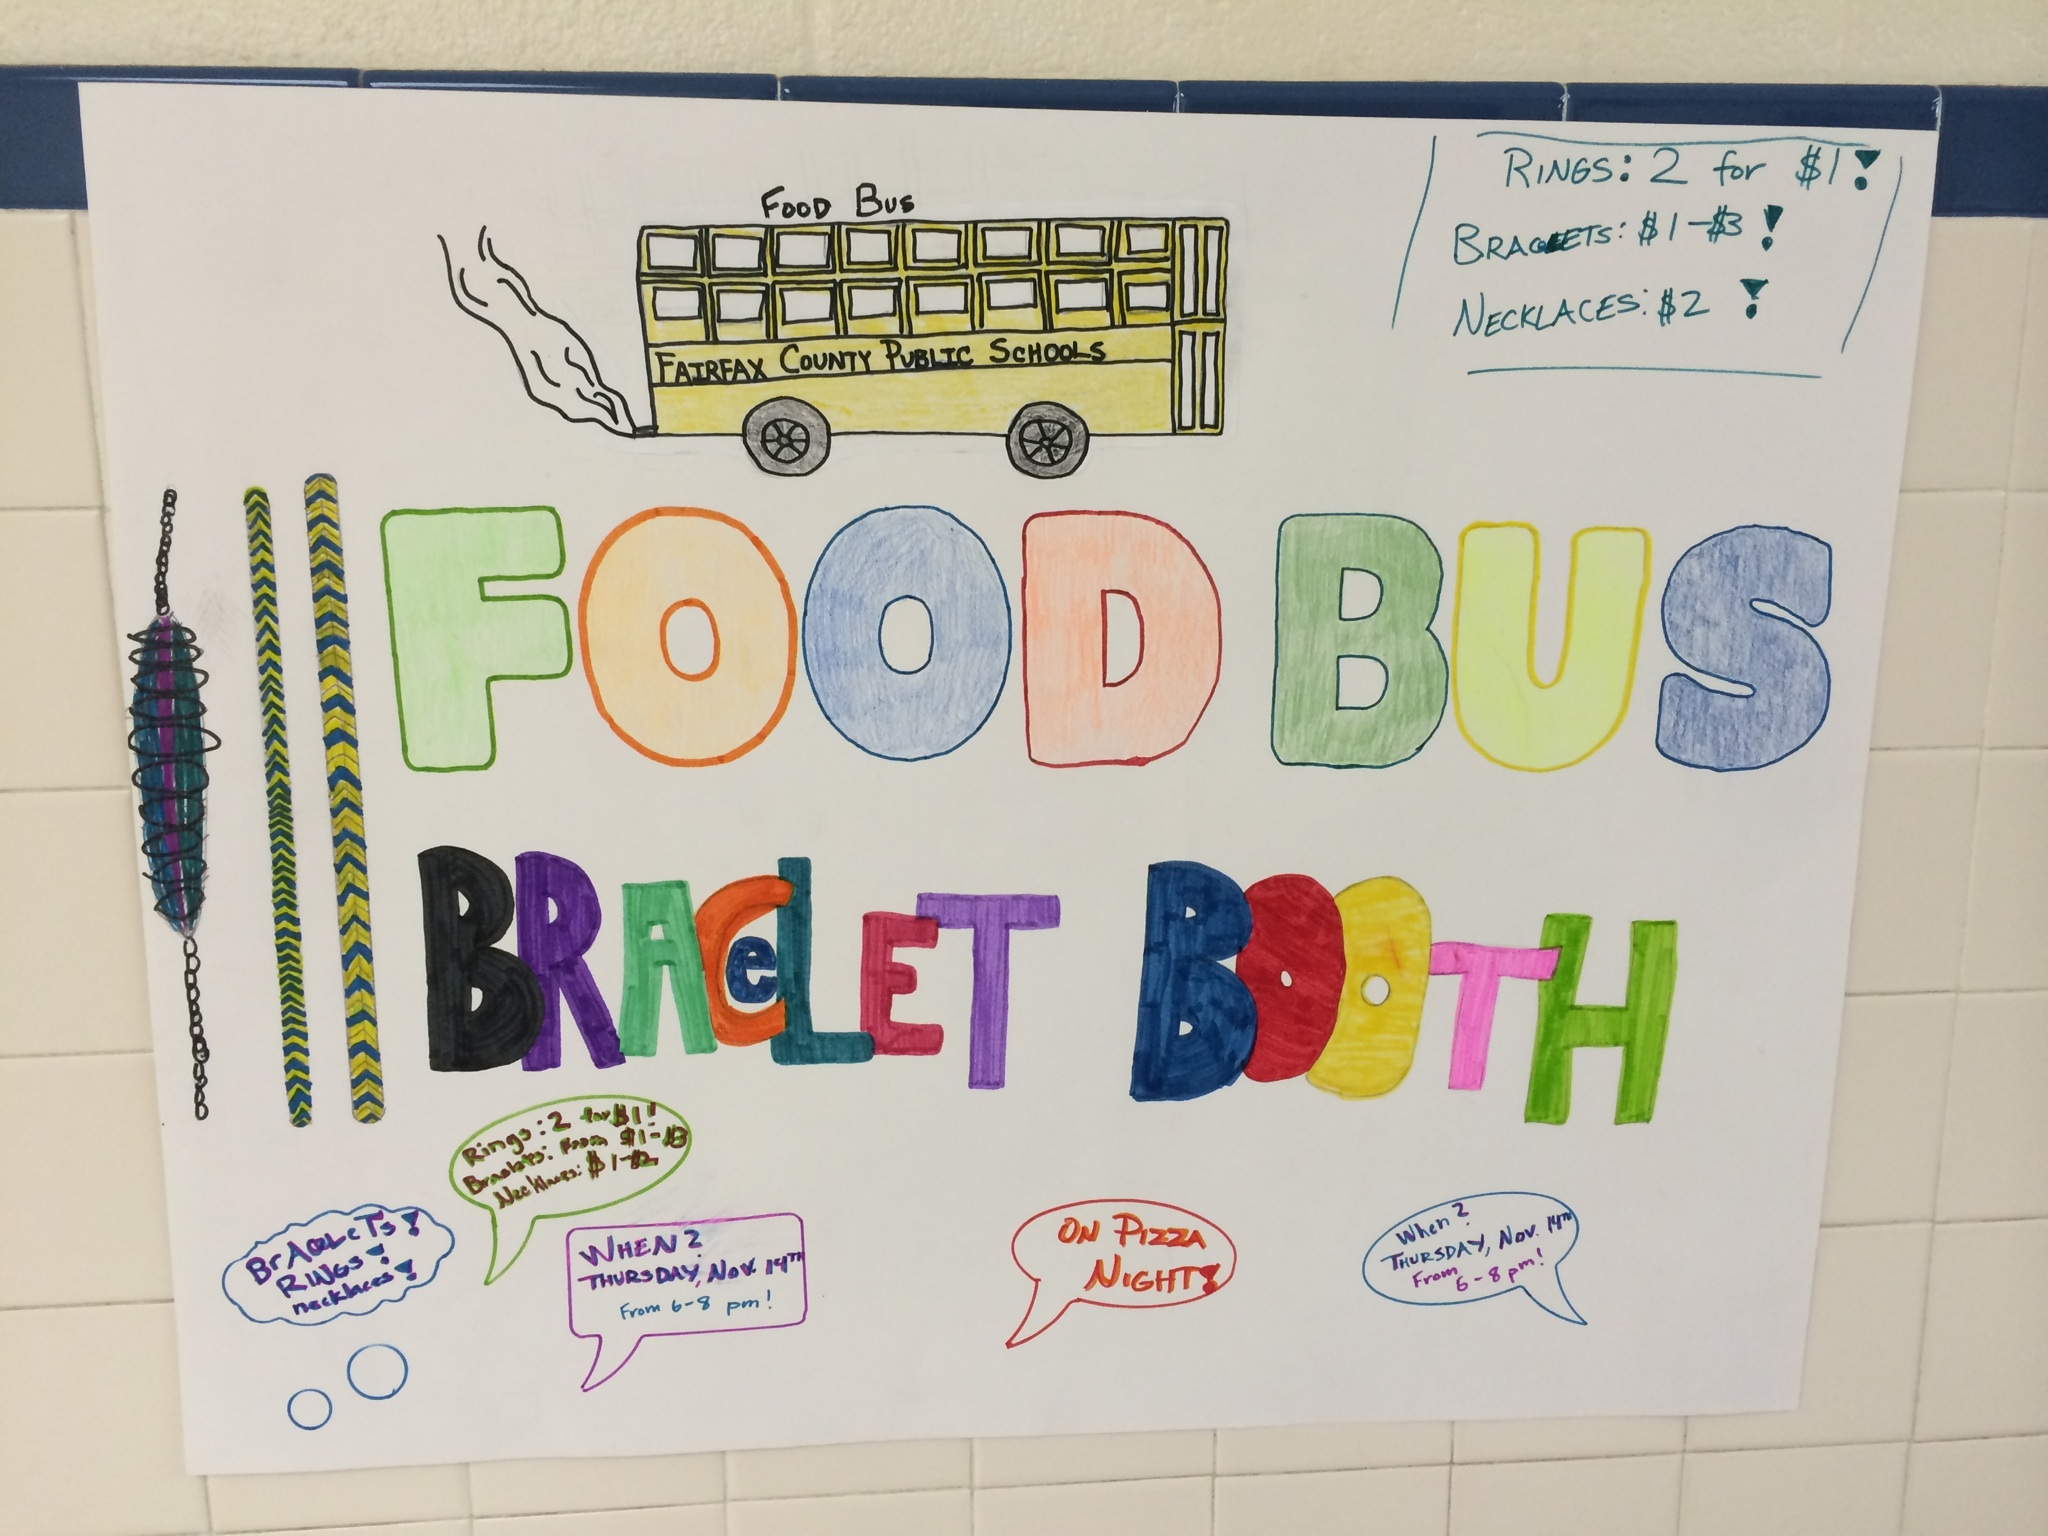 Food Bus
Fairfax County Public Schools
Rings: 2 for $1!
Bracelets: $1-$3!
Necklaces: $2!
FOOD BUS
BRACeLET BOOTH
Rings: 2 for $1!
Bracelets: From $1-$3
Necklaces: $1-$2
BrAceLeTs!
RINGS!
necklaces!
WHEN?
THURSDAY, NOV. 14TH
From 6-8 pm!
ON PIZZA
NIGHT!
When?
THURSDAY, NOV. 14TH
From
6-8 pm!